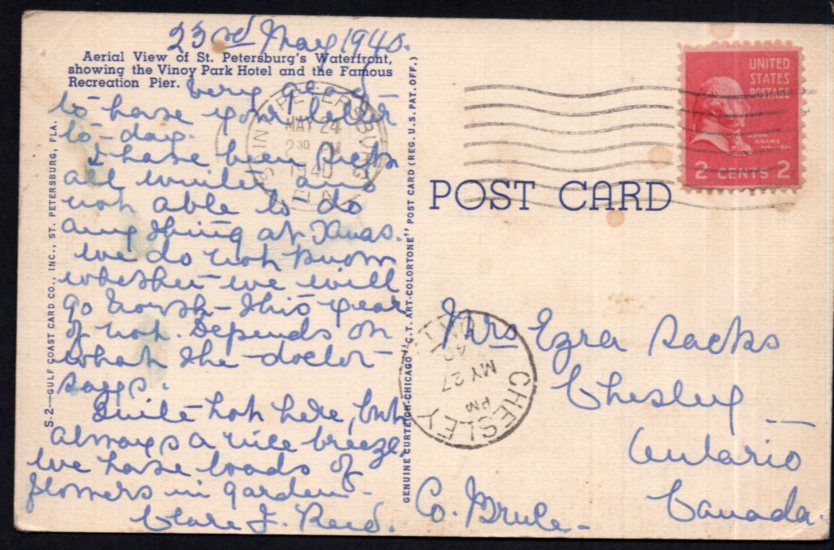 23rd May 1940.
Aerial View of St. Petersburg's Waterfront,
showing the Vinoy Park Hotel and the Famous
Recreation Pier.
Very good
to have your letter
to-day.
I have been sick
all winter and
not able to do
anything at Xmas.
We do not know
whether we will
go North this year
or not. Depends on
what the doctor
says.
Quite hot here, but
always a nice breeze
we have loads of
flowers in garden.
Clare J. Reed.
S-2—GULF COAST CARD CO., INC., ST. PETERSBURG, FLA.
GENUINE CURTEICH-CHICAGO "C.T. ART-COLORTONE" POST CARD (REG. U.S. PAT. OFF.)
SAINT PETERSBURG
MAY 24
2 30 PM
1940
UNITED
STATES
POSTAGE
JOHN
ADAMS
2 CENTS 2
POST CARD
CHESLEY
PM
MY 27
40
ONT
Mrs Ezra Sacks
Chesley
Ontario
Co. Bruce -
Canada.